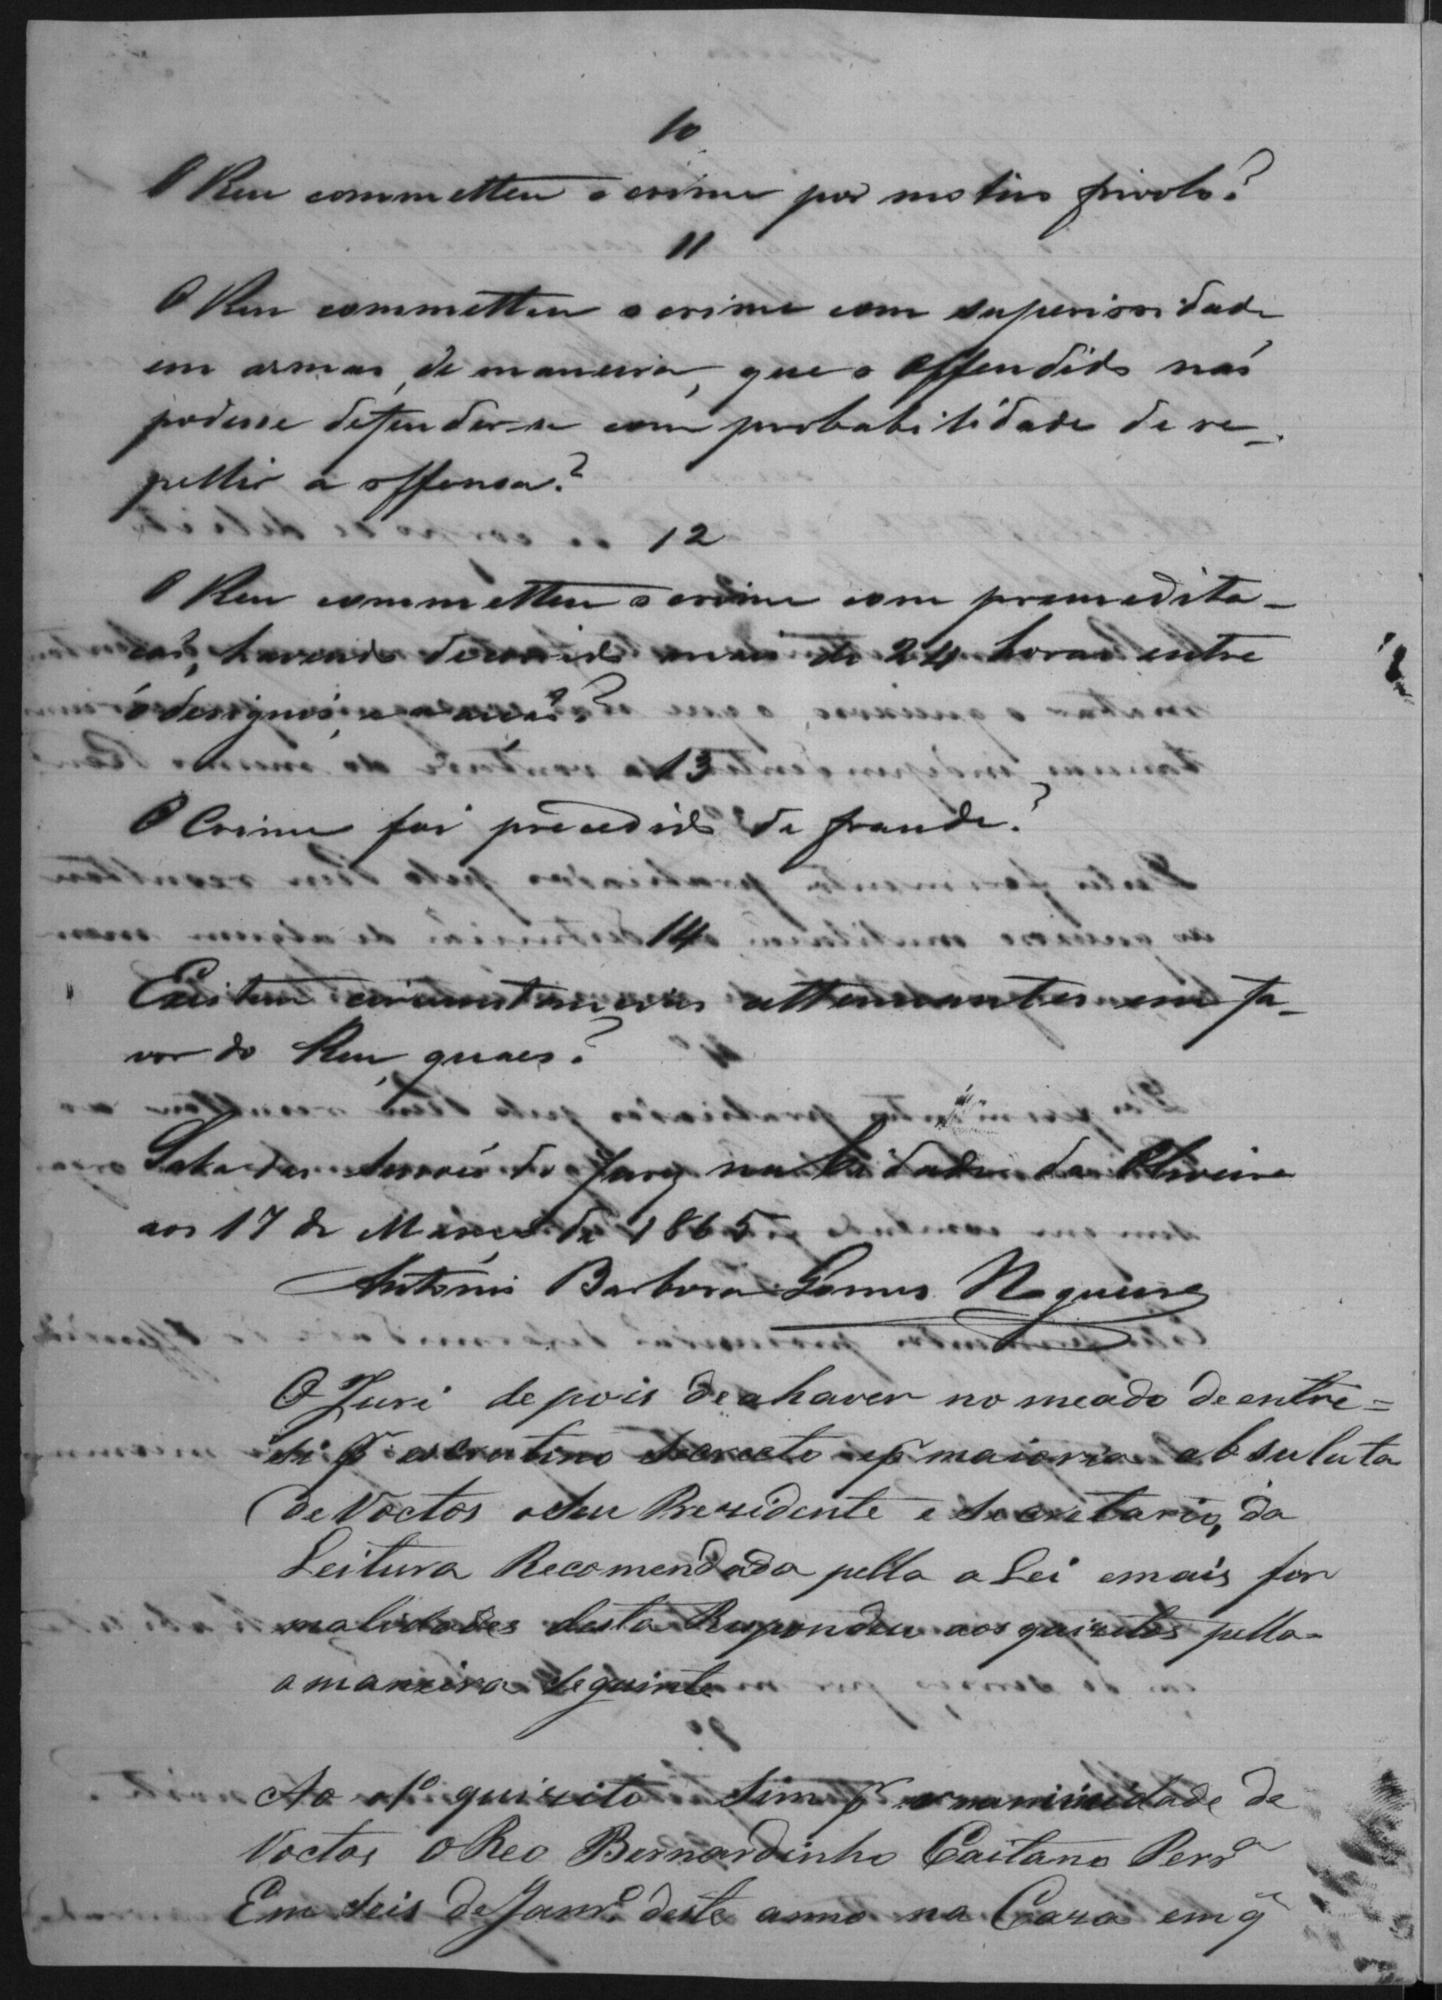 10
O Reu commetteu o crime por motivo frivolo?
11
O Reu commetteu o crime com superioridade
em armas, de maneira, que o offendido não
podesse defender-se com probabilidade de re-
pellir a offensa?
12
O Reu commetteu o crime com premedita-
ção, havendo decorrido mais de 24 horas entre
o designio, e a acção?
13
O Crime foi precedido de fraude?
14
Existem circumstancias attenuantes em fa-
vor do Reu, quaes?
Sala das Sessões do Jury na Cidade da Oliveira
aos 17 de Março de 1865
Antonio Barbosa Gomes Nogueira
O Juri depois de ahaver no meado de entre=
si p^r escrutino secreto e p^r maioria absuluta
de Voctos o seu Prezidente e Secretario, da
Leitura Recomendada pella a Lei emais for
malidades desta Respondeu aos quizitos pella
a maneira seguinte
Ao 1º quizito Sim p^r unanimidade de
Voctos O Reo Bernardinho Caitano Perr^a
Em seis de Janr.º deste anno na Caza em q^